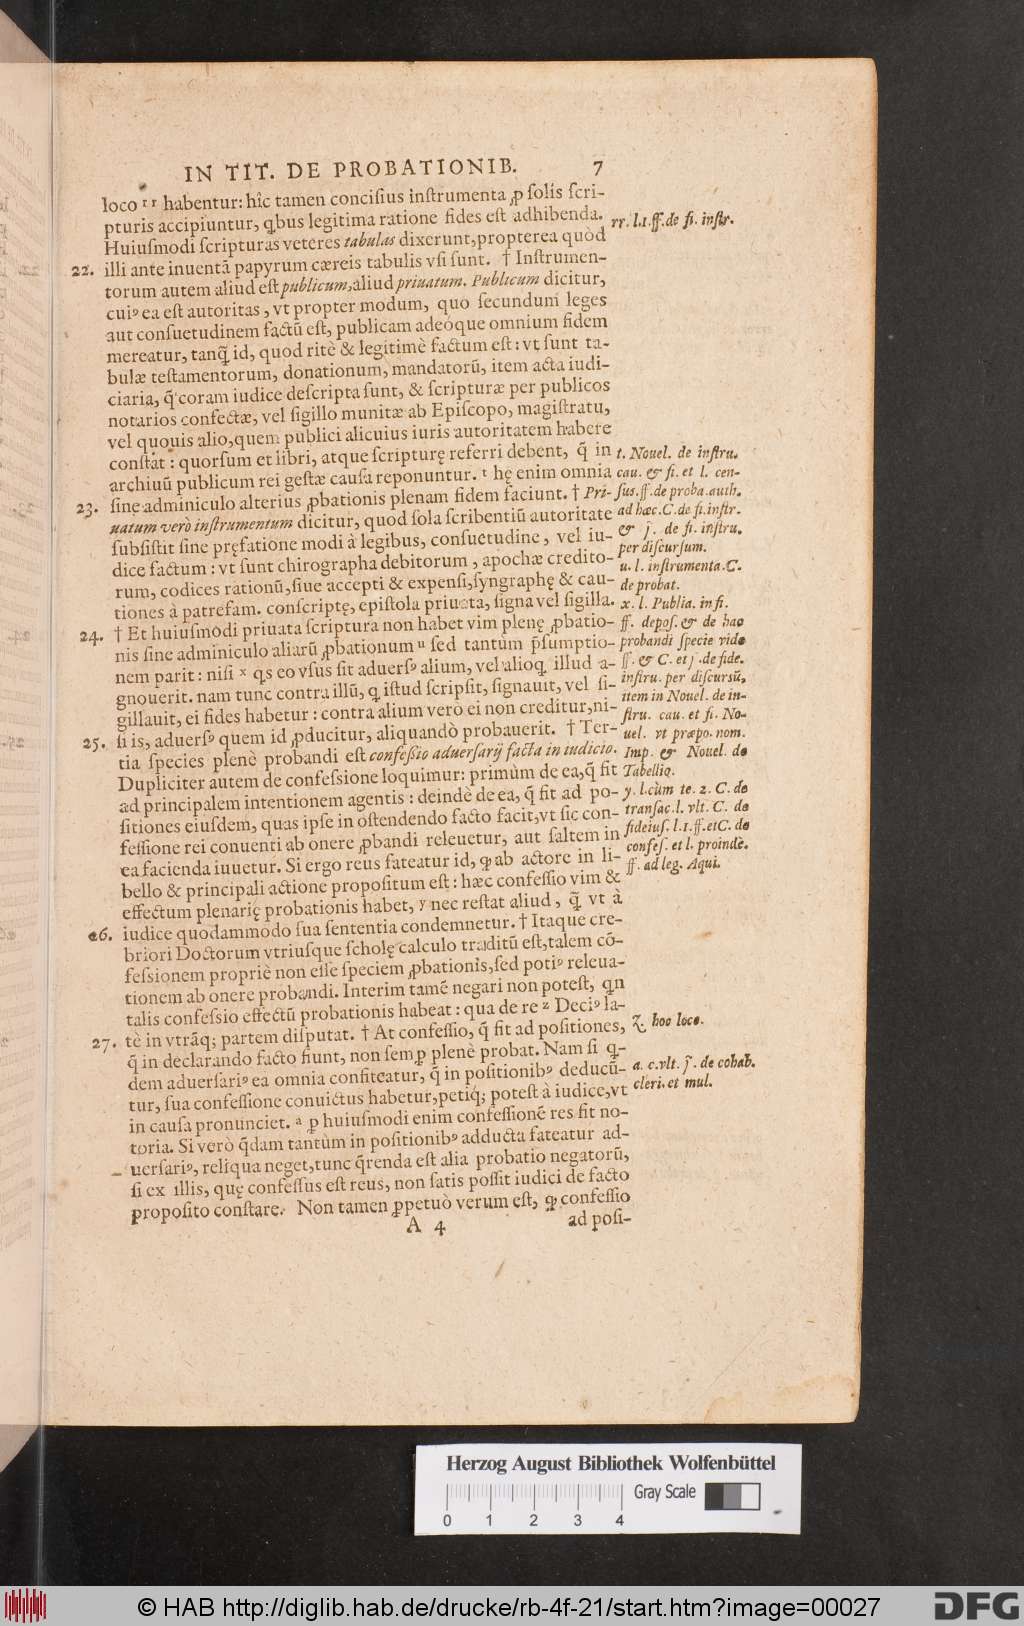 IN TIT. DE PROBATIONIB. 7
loco rr habentur: hîc tamen conciſius inſtrumenta ꝓ ſolis ſcri-
pturis accipiuntur, ꝗbus legitima ratione fides eſt adhibenda.
Huiuſmodi ſcripturas veteres tabulas dixerunt, propterea quòd
22. illi ante inuentã papyrum cæreis tabulis vſi ſunt. † Inſtrumen-
torum autem aliud eſt publicum, aliud priuatum. Publicum dicitur,
cuiꝰ ea eſt autoritas, vt propter modum, quo ſecundum leges
aut conſuetudinem factũ eſt, publicam adeóque omnium fidem
mereatur, tanq̃ id, quod ritè & legitimè factum eſt: vt ſunt ta-
bulæ teſtamentorum, donationum, mandatorũ, item acta iudi-
ciaria, q̃ coram iudice deſcripta ſunt, & ſcripturæ per publicos
notarios confectæ, vel ſigillo munitæ ab Epiſcopo, magiſtratu,
vel quouis alio, quem publici alicuius iuris autoritatem habere
conſtat: quorſum et libri, atque ſcripturę referri debent, q̃ in
archiuũ publicum rei geſtæ cauſa reponuntur. t hę enim omnia
23. ſine adminiculo alterius ꝓbationis plenam fidem faciunt. † Pri-
uatum verò inſtrumentum dicitur, quod ſola ſcribentiũ autoritate
ſubſiſtit ſine pręfatione modi à legibus, conſuetudine, vel iu-
dice factum: vt ſunt chirographa debitorum, apochæ credito-
rum, codices rationũ, ſiue accepti & expenſi, ſyngraphę & cau-
tiones à patrefam. conſcriptę, epiſtola priuata, ſigna vel ſigilla.
24. † Et huiuſmodi priuata ſcriptura non habet vim plenę ꝓbatio-
nis ſine adminiculo aliarũ ꝓbationum u ſed tantùm p̃ſumptio-
nem parit: niſi x ꝗs eo vſus ſit aduerſꝰ alium, vel alioꝗ illud a-
gnouerit. nam tunc contra illũ, ꝗ iſtud ſcripſit, ſignauit, vel ſi-
gillauit, ei fides habetur: contra alium verò ei non creditur, ni-
25. ſi is, aduerſꝰ quem id ꝓducitur, aliquandò probauerit. † Ter-
tia ſpecies plenè probandi eſt confeſsio aduerſarij facta in iudicio.
Dupliciter autem de confeſsione loquimur: primùm de ea, q̃ fit
ad principalem intentionem agentis: deindè de ea, q̃ fit ad po-
ſitiones eiuſdem, quas ipſe in oſtendendo facto facit, vt ſic con-
feſsione rei conuenti ab onere ꝓbandi releuetur, aut ſaltem in
ea facienda iuuetur. Si ergo reus fateatur id, ꝙ ab actore in li-
bello & principali actione propoſitum eſt: hæc confeſsio vim &
effectum plenarię probationis habet, y nec reſtat aliud, q̃ vt à
26. iudice quodammodo ſua ſententia condemnetur. † Itaque cre-
briori Doctorum vtriuſque ſcholę calculo traditũ eſt, talem cõ-
feſsionem propriè non eſſe ſpeciem ꝓbationis, ſed potiꝰ releua-
tionem ab onere probandi. Interim tamẽ negari non poteſt, ꝗn
talis confeſsio effectũ probationis habeat: qua de re z Deciꝰ la-
27. tè in vtrãq; partem diſputat. † At confeſsio, q̃ fit ad poſitiones,
q̃ in declarando facto fiunt, non ſemꝑ plenè probat. Nam ſi ꝗ-
dem aduerſariꝰ ea omnia confiteatur, q̃ in poſitionibꝰ deducũ-
tur, ſua confeſsione conuictus habetur, petiq́; poteſt à iudice, vt
in cauſa pronunciet. a ꝑ huiuſmodi enim confeſsionẽ res fit no-
toria. Si verò q̃dam tantùm in poſitionibꝰ adducta fateatur ad-
uerſariꝰ, reliqua neget, tunc q̃renda eſt alia probatio negatorũ,
ſi ex illis, quę confeſſus eſt reus, non ſatis poſsit iudici de facto
propoſito conſtare. Non tamen ꝑpetuò verum eſt, ꝙ confeſsio
A 4 ad poſi-
rr. l.1. ff. de fi. inſtr.
t. Nouel. de inſtru.
cau. & fi. et l. cen-
ſus. ff. de proba. auth.
ad hæc. C. de fi. inſtr.
& j̃. de fi. inſtru.
per diſcurſum.
u. l. inſtrumenta. C.
de probat.
x. l. Publia. in fi.
ff. depoſ. & de hac
probandi ſpecie vide
ff. & C. et j̃. de fide.
inſtru. per diſcursũ,
item in Nouel. de in-
ſtru. cau. et fi. No-
uel. vt præpo. nom.
Imp. & Nouel. de
Tabellio.
y. l. cùm te. 2. C. de
tranſac. l. vlt. C. de
fideiuſ. l.1. ff. et C. de
confeſ. et l. proindè.
ff. ad leg. Aqui.
z. hoc loco.
a. c. vlt. j̃. de cohab.
cleri. et mul.
Herzog August Bibliothek Wolfenbüttel
Gray Scale
0 1 2 3 4
© HAB http://diglib.hab.de/drucke/rb-4f-21/start.htm?image=00027
DFG